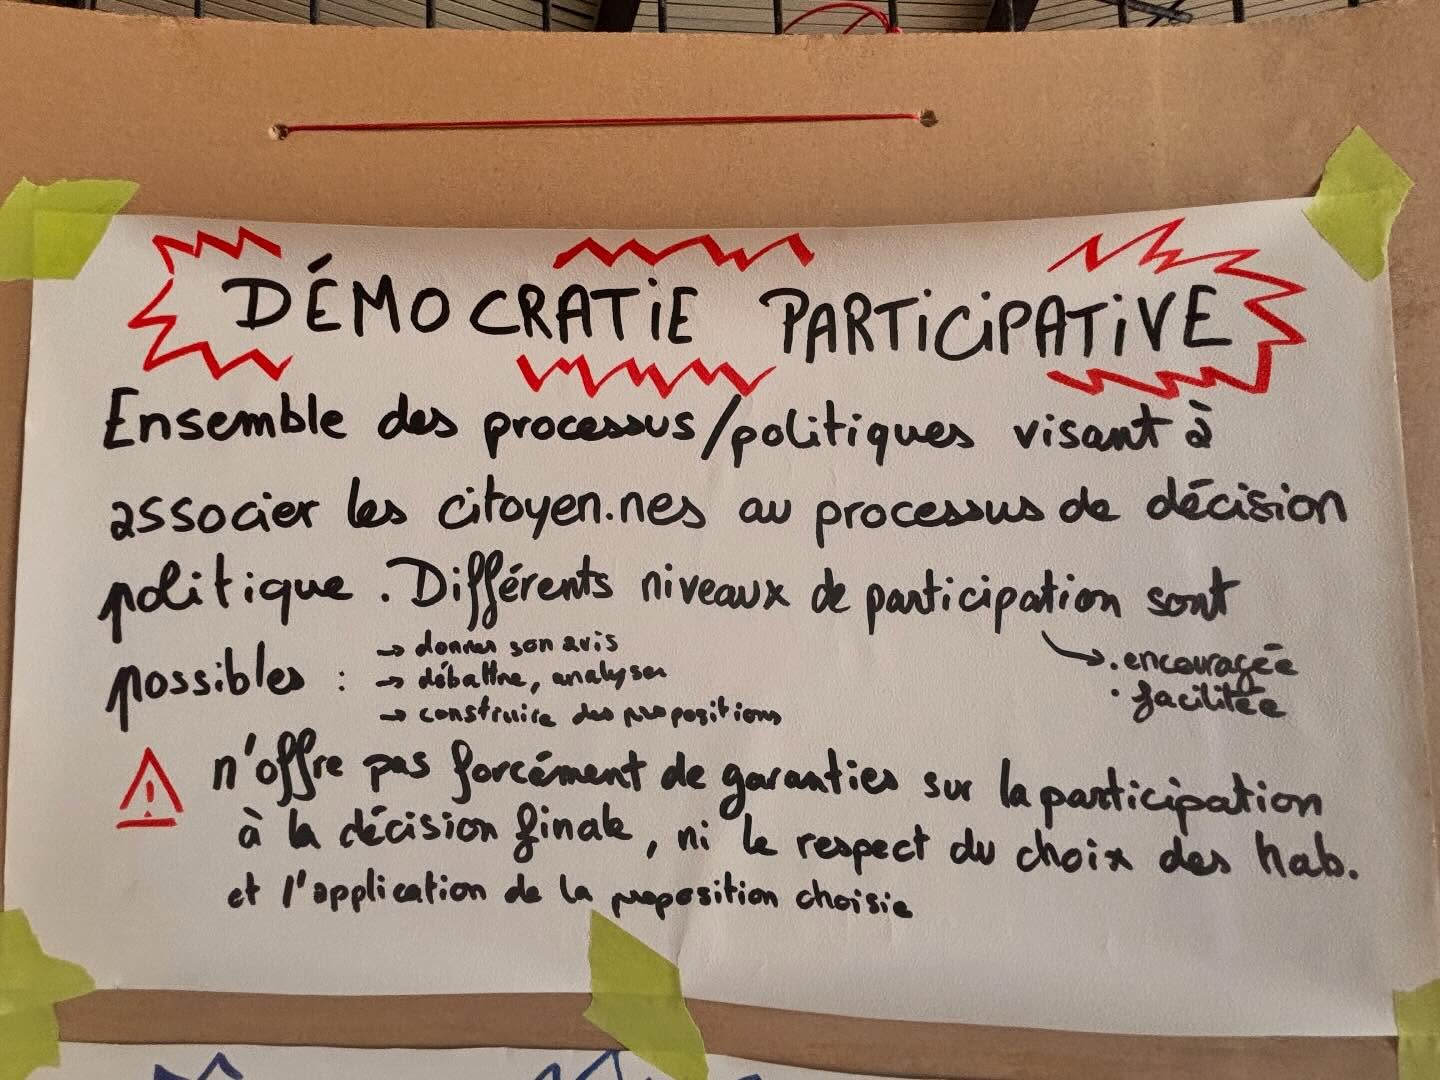 DÉMOCRATIE PARTICIPATIVE
Ensemble des processus/politiques visant à
associer les citoyen.nes au processus de décision
politique. Différents niveaux de participation sont
possibles :
→ donner son avis
→ débattre, analyser
→ construire des propositions
→ . encouragée
. facilitée
n'offre pas forcément de garanties sur la participation
à la décision finale, ni le respect du choix des hab.
et l'application de la proposition choisie